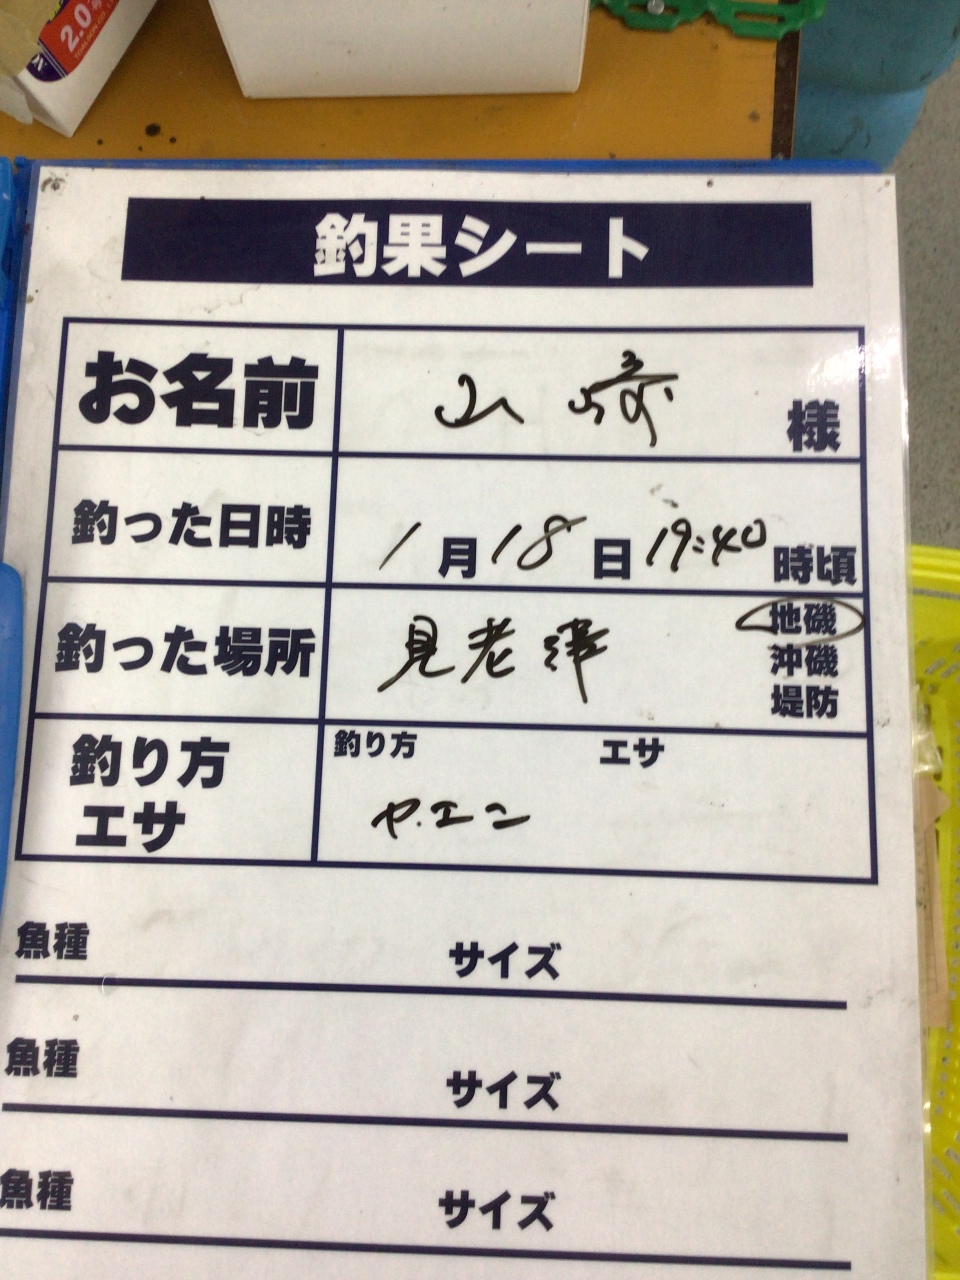 2.0
釣果シート
お名前 山崎 様
釣った日時 1月18日19:40時頃
釣った場所 見老津 地磯
沖磯
堤防
釣り方 エサ
釣り方
エサ ヤエン
魚種 サイズ
魚種 サイズ
魚種 サイズ